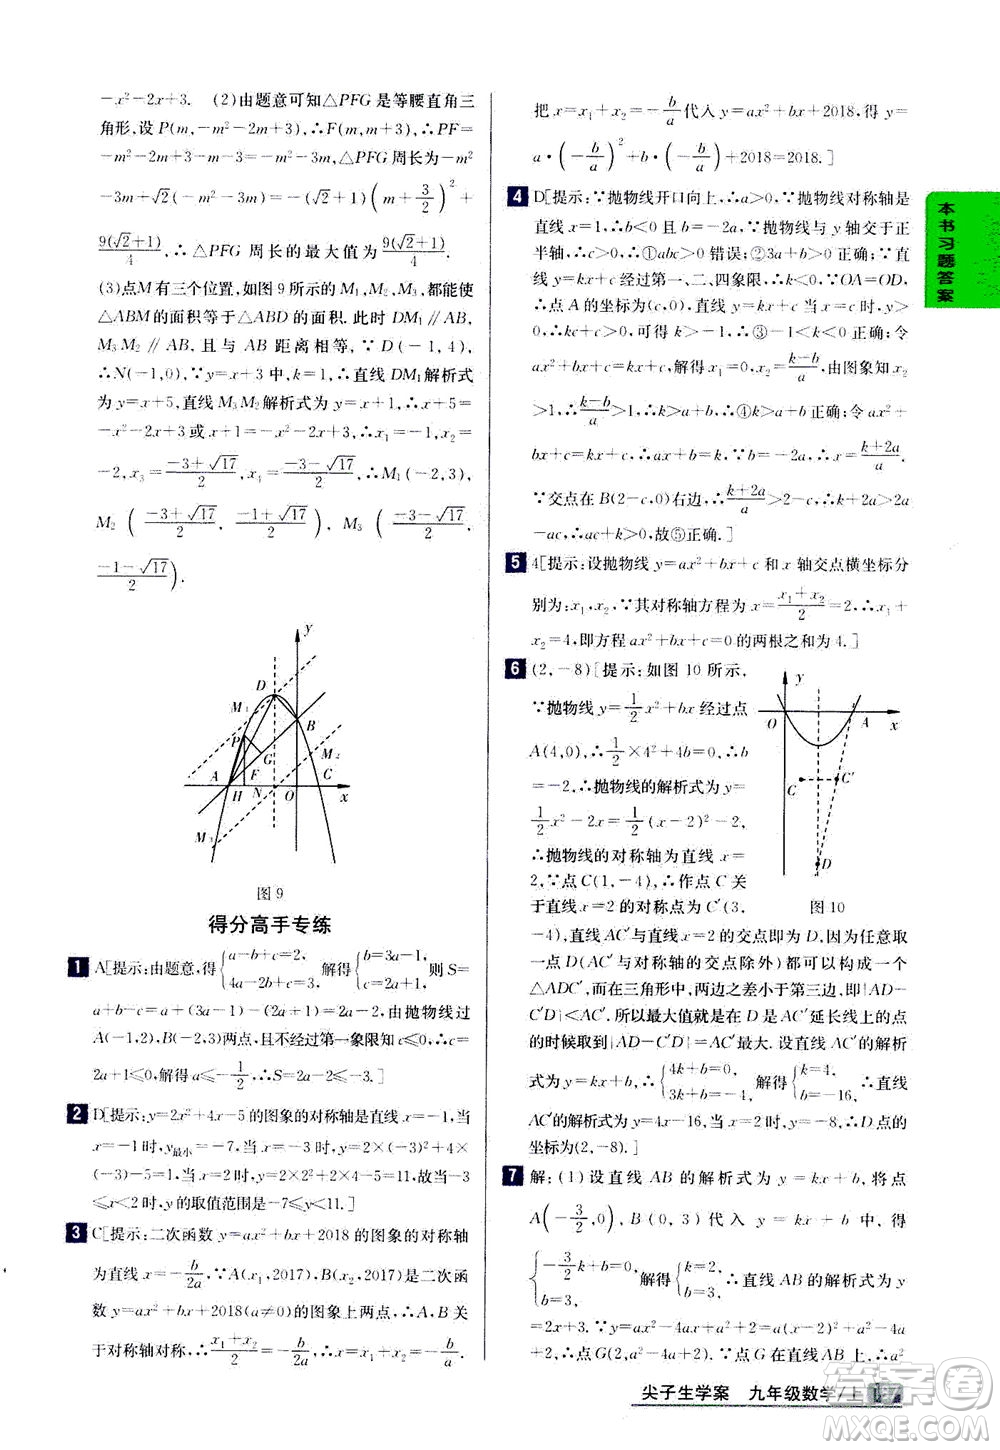 -x²-2x+3. (2)由题意可知△PFG是等腰直角三
角形,设P(m,-m²-2m+3),∴F(m,m+3),∴PF=
-m²-2m+3-m-3=-m²-3m,△PFG周长为-m²
-3m+√2(-m²-3m)=-(√2+1)(m+3/2)²+
9(√2+1)/4,∴△PFG周长的最大值为9(√2+1)/4.
(3)点M有三个位置,如图9所示的M₁,M₂,M₃,都能使
△ABM的面积等于△ABD的面积.此时DM₁∥AB,
M₃M₂∥AB,且与AB距离相等,∵D(-1,4),
∴N(-1,0),∵y=x+3中,k=1,∴直线DM₁解析式
为y=x+5,直线M₃M₂解析式为y=x+1,∴x+5=
-x²-2x+3或x+1=-x²-2x+3,∴x₁=-1,x₂=
-2,x₃=(-3+√17)/2,x₄=(-3-√17)/2,∴M₁(-2,3),
M₂((-3+√17)/2, (-1+√17)/2), M₃((-3-√17)/2,
(-1-√17)/2).
y
D
M₁
B
P
G
M₂
A
F
C
H
N
O
x
M₃
图9
得分高手专练
1 A[提示:由题意,得{a-b+c=2, 4a-2b+c=3, 解得{b=3a-1, c=2a+1,则S=
a+b+c=a+(3a-1)+(2a+1)=6a.由抛物线过
A(-1,2),B(-2,3)两点,且不过第一象限可知:c=
2a+1≤0,解得a≤-1/2,∴S=6a≤-3.]
2 D[提示:y=2x²+4x-5的图象的对称轴是直线x=-1,当
x=-1时,y最小=2×(-1)²+4×
(-3)-5=1,当x=2时,y=2×2²+4×2-5=11,故当-3
≤x<2时,y的取值范围是-7≤y<11.]
3 C[提示:二次函数y=ax²+bx+2018的图象的对称轴
为直线x=-b/2a,∵A(x₁,2017),B(x₂,2017)是二次函
数y=ax²+bx+2018(a≠0)的图象上两点,∴A,B关
于对称轴对称,∴(x₁+x₂)/2=-b/2a,∴x₁+x₂=-b/a.
把x=x₁+x₂=-b/a代入y=ax²+bx+2018,得y=
a·(-b/a)²+b·(-b/a)+2018=2018.]
4 D[提示:∵抛物线开口向上,∴a>0,∵抛物线对称轴是
直线x=1,∴b<0且b=-2a,∵抛物线与y轴交于正
半轴,∴c>0,∴①abc>0错误;②3a>0,正确;∵直线
y=kx+c经过第一、二、四象限,∴k<0,∵OA=OD,
∴点A的坐标为(c,0),直线y=kx+c当x=c时,y=
0,∴kc+c=0,可得k=-1,∴③-1<k<0正确;令
ax²+bx+c=kx+c,解得x₁=0,x₂=(k-b)/a,由图象知x₂
>1,∴(k-b)/a>1,∴k>a+b,∴④k>a+b正确;令ax²+
bx+c=kx+c,∴x₁=0,x₂=(k-b)/a=(k+2a)/a.
∵交点在B(2-c,0)右边,∴(k+2a)/a>2-c,∴k+2a>
2a-ac,∴ac+k>0,故⑤正确.]
5 4[提示:设抛物线y=ax²+bx+c和x轴交点横坐标分
别为:x₁,x₂,∵其对称轴方程为x=(x₁+x₂)/2=2,∴x₁+
x₂=4,即方程ax²+bx+c=0的两根之和为4.]
6 (2,-8)[提示:如图10所示,
∵抛物线y=1/2x²+bx经过点
A(4,0),∴1/2×4²+4b=0,∴b
=-2,∴抛物线的解析式为y=
1/2x²-2x=1/2(x-2)²-2,
∴抛物线的对称轴为直线x=
2,∵点C(1,-4),∴作点C关
于直线x=2的对称点为C′(3,
y
O
A
x
C
C′
D
图10
-4),直线AC′与直线x=2的交点即为D,因为任意取
一点D(AC′与对称轴的交点除外)都可以构成一个
△ADC′,而在三角形中,两边之差小于第三边,即|AD-
C′D|<AC′.所以最大值就是在D是AC′延长线上的点
的时候取到|AD-C′D|=AC′最大.设直线AC′的解析
式为y=kx+b,∴{4k+b=0, 3k+b=-4, 解得{k=4, b=-16,∴直线
AC′的解析式为y=4x-16,当x=2时,y=-8,∴D点的
坐标为(2,-8).]
7 解:(1)设直线AB的解析式为y=kx+b,将点
A(-3/2,0),B(0,3)代入y=kx+b中,得
{-3/2k+b=0, b=3, 解得{k=2, b=3,∴直线AB的解析式为y
=2x+3.
尖子生学案 九年级数学/上
本书习题答案
答案圈